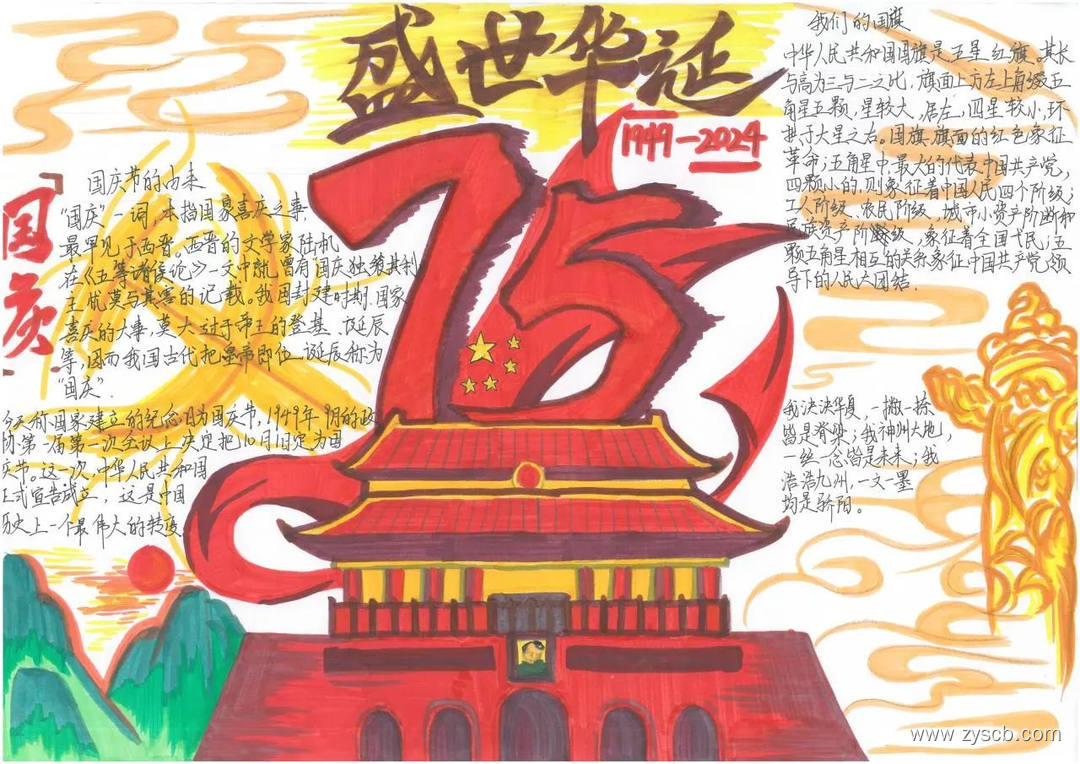 盛世华诞
1949-2024
75
国庆
国庆节的由来
"国庆"一词,本指国家喜庆之事,
最早见于西晋。西晋的文学家陆机
在《五等诸侯论》一文中就曾有国庆独飨其利
主忧莫与其害的记载。我国封建时期.国家
喜庆的大事,莫大过于帝王的登基、诞辰
等,因而我国古代把皇帝即位、诞辰称为
"国庆".
今天称国家建立的纪念日为国庆节,1949年9月的政
协第一届第一次会议上决定把10月1日定为国
庆节。这一次,中华人民共和国
正式宣告成立,这是中国
历史上一个最伟大的转变
我们的国旗
中华人民共和国国旗是五星红旗。其长
与高为三与二之比,旗面上方左上角缀五
角星五颗,星较大,居左,四星较小,环
拱于大星之右。国旗旗面的红色象征
革命;五角星中,最大的代表中国共产党,
四颗小的,则象征着中国人民四个阶级;
工人阶级、农民阶级、城市小资产阶级和
民族资产阶级,象征着全国人民;五
颗五角星相互的关系象征中国共产党领
导下的人民大团结.
我泱泱华夏,一撇一捺
皆是脊梁;我神州大地,
一丝一念皆是未来;我
浩浩九州,一文一墨
均是骄阳。
www.zyscb.com